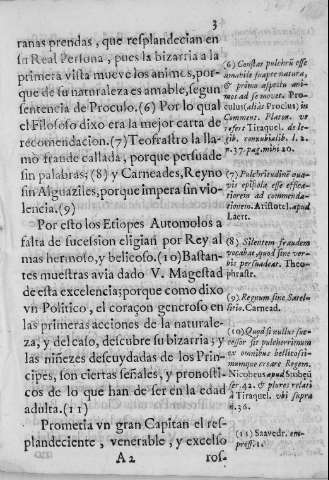 3
ranas prendas, que resplandecian en
su Real Persona, pues la bizarria a la
primera vista mueve los animos, por-
que de su naturaleza es amable, segun
sentencia de Proculo. (6) Por lo qual
el Filosofo dixo era la mejor carta de
recomendacion. (7) Teofrastro la lla-
mò fraude callada, porque persuade
sin palabras; (8) y Carneades, Reyno
sin Alguaziles, porque impera sin vio-
lencia. (9)
Por esto los Etiopes Automolos a
falta de sucession eligian por Rey al
mas hermoso, y belicoso. (10) Bastan-
tes muestras avia dado V. Magestad
de esta excelencia; porque como dixo
vn Politico, el coraçon generoso en
las primeras acciones de la naturale-
za, y del caso, descubre su bizarria; y en
las niñezes descuydadas de los Prin-
cipes, son ciertas señales, y pronosti-
cos de lo que han de ser en la edad
adulta. (11)
Prometia vn gran Capitan el res-
plandeciente, venerable, y excelso
A 2
ros-
(6) Constat pulchrũ esse
amabile suapte natura,
& primo aspectu ani-
mos ad se movere. Pro-
culus (aliàs Proclus) in
Comment. Platon. vt
refert Tiraquel. de le-
gib. connubialib. l. 2.
n. 37. pag. mihi 20.
(7) Pulchritudinẽ qua-
vis epistola esse effica-
tiorem ad commenda-
tionem. Aristotel. apud
Laert.
(8) Silentem fraudem
vocabat, quod sine ver-
bis persuadeat. Theo-
phrastr.
(9) Regnum sine Satel-
litio. Carnead.
(10) Quod si nullus suc-
cessor sit pulcherrimum
ex omnibus bellicosis-
simumque creare Regem.
Nicoheus apud Stobeũ
ser. 42. & plures relati
à Tiraquel. vbi supra
n. 36.
(11) Saavedr. em-
press. 1.